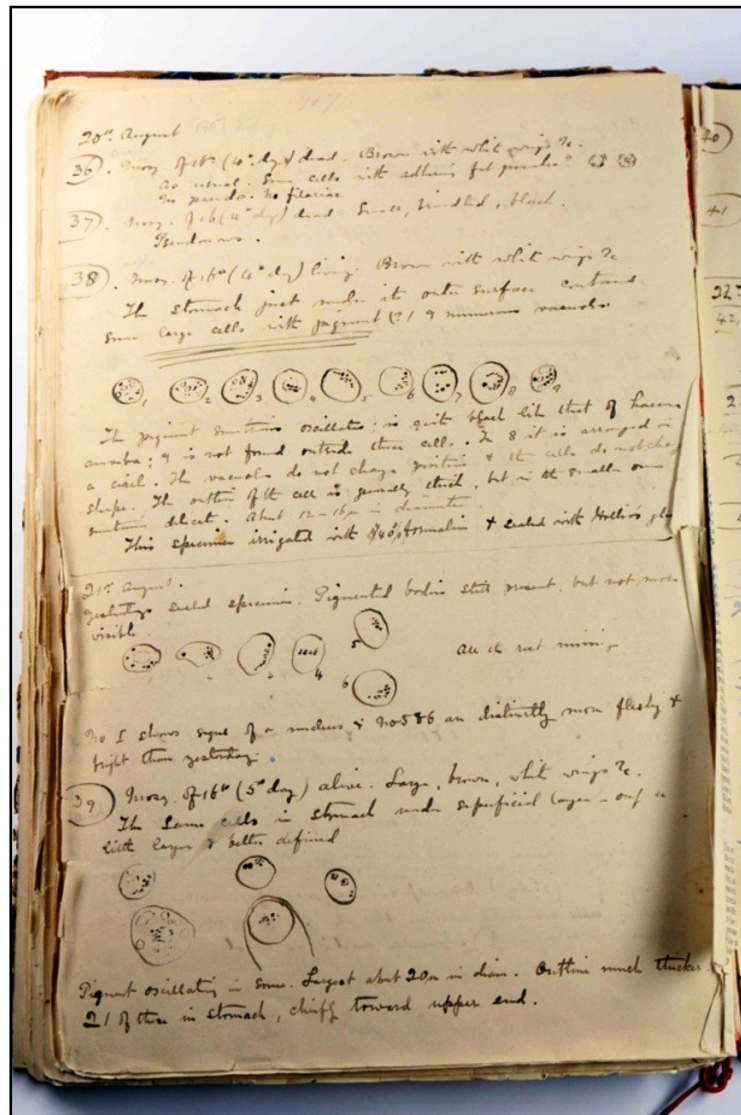 107
20th August 1897
36. Mosq. of 16th (4th day) dead. Brown with white wings &c.
As usual. Some cells with adhering fat granules?
No pseudo. No filariae
37. Mosq. of 16 (4th day) dead. Small, brindled, black.
Pseudonavs.
38. Mosq. of 16th (4th day) living. Brown with white wings &c
The stomach just under its outer surface contains
some large cells with pigment (?) & numerous vacuoles
1 2 3 4 5 6 7 8 9
The pigment sometimes oscillates; is quite black like that of haem
amoeba; & is not found outside these cells. In 8 it is arranged in
a circle. The vacuoles do not change position & the cells do not change
shape. The outline of the cell is generally thick, but in the smaller ones
sometimes delicate. About 12-16µ in diameter.
This specimen irrigated with 40% formalin & sealed with Hollis's glue
21st August.
Yesterday's sealed specimen. Pigmented bodies still present, but not more
visible.
3 4 5 6 All the rest missing
No 1 shows signs of a nucleus & No 5 & 6 are distinctly more fleshy &
bright than yesterday.
39 Mosq. of 16th (5th day) alive. Large, brown, white wings &c.
The same cells in stomach under superficial layer - only a
little larger & better defined
Pigment oscillating in some. Largest about 20µ in diam. Outline much thicker.
21 of these in stomach, chiefly toward upper end.
40
41
22
42